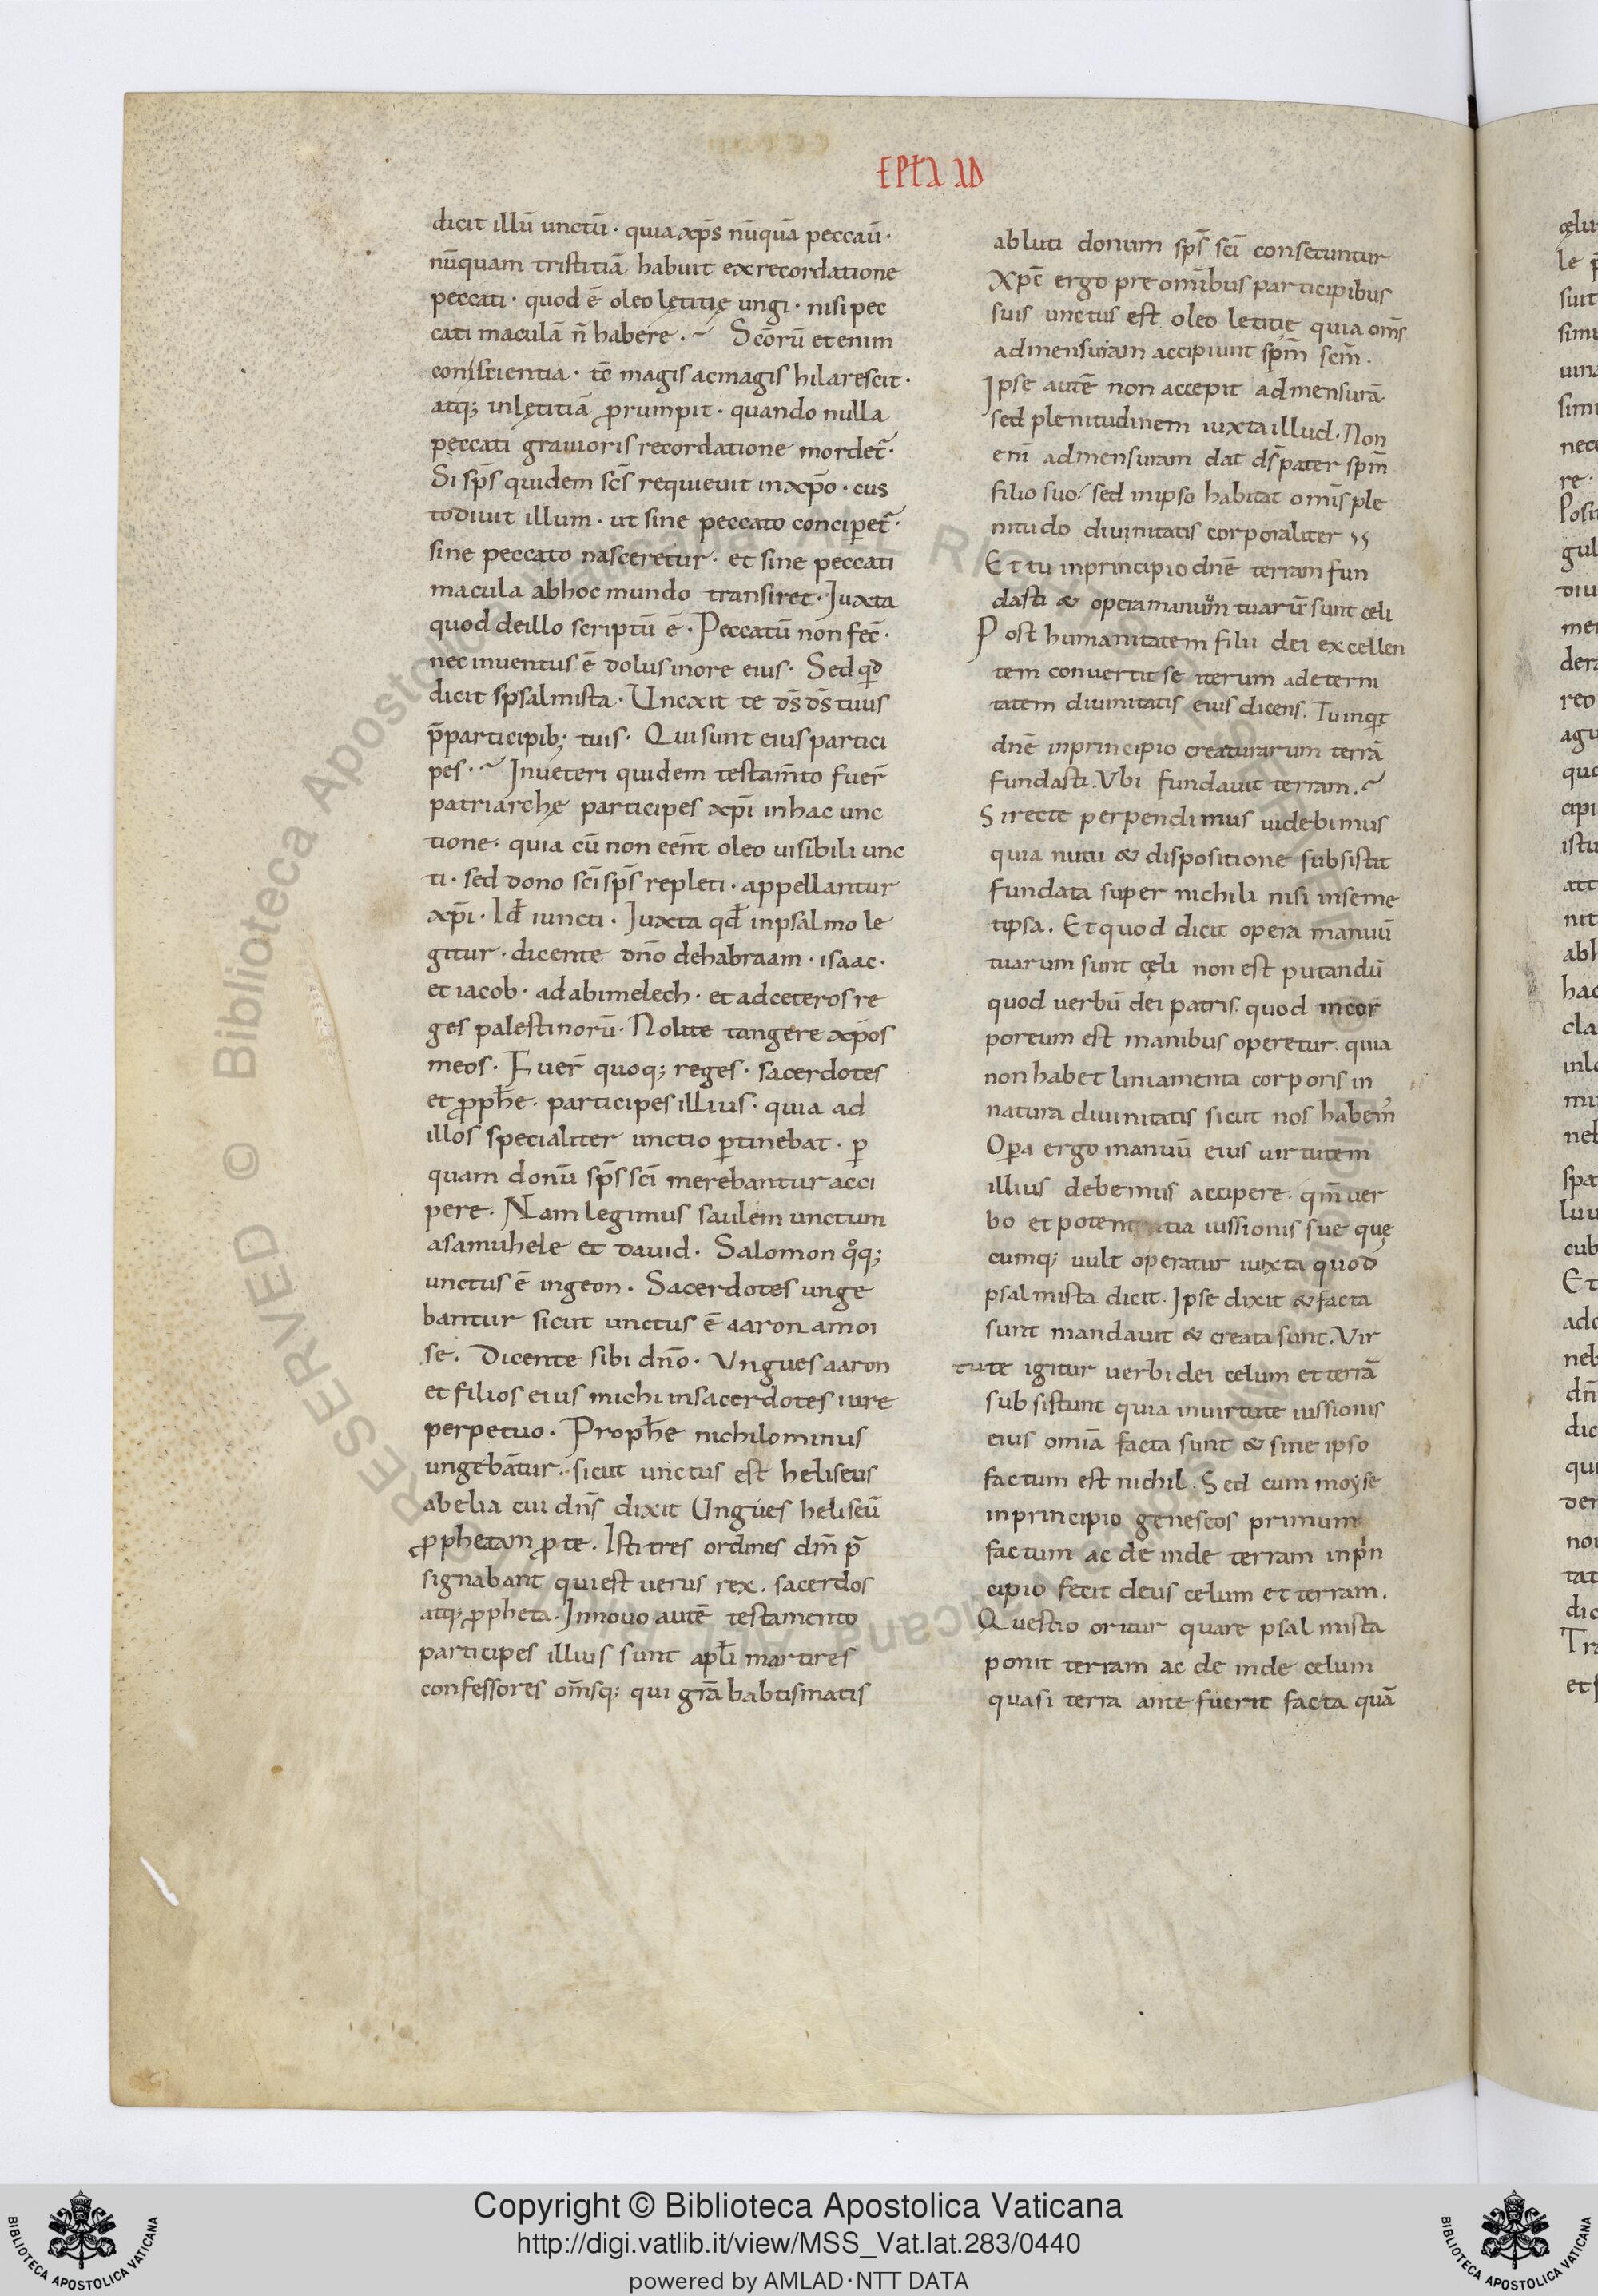 EPŁA AD
dicit illū unctū · quia xp̄s nūquā peccaū ·
nūquam tristitiā habuit ex recordatione
peccati · quod ē oleo lętitię ungi · nisi pec
cati maculā n̄ habere · Sc̄orū etenim
conscientia · tc̄ magis ac magis hilarescit ·
atq; in lętitiā ꝓrumpit · quando nulla
peccati gravioris recordatione mordet̄ ·
Si sp̄s quidem sc̄s requievit in xp̄o · cus
todivit illum · ut sine peccato conciꝑet̄ ·
sine peccato nasceretur · et sine peccati
macula ab hoc mundo transiret · Juxta
quod de illo scriptū ē · Peccatū non fec̄ ·
nec inventus ē dolus in ore eius · Sed qd̄
dicit spsalmista · Uncxit te d̄s d̄s tuus
p̄participib; tuis · Qui sunt eius partici
pes · In veteri quidem testam̄to fuer̄
patriarche participes xp̄i in hac unc
tione · quia cū non eēnt oleo visibili unc
ti · sed dono sc̄i sp̄s repleti · appellantur
xp̄i · Id̄ iuncti · Juxta qd̄ in psalmo le
gitur · dicente dn̄o de habraam · isaac ·
et iacob · ad abimelech · et ad ceteros re
ges palestinorū · Nolite tangere xp̄os
meos · Fuer̄ quoq; reges · sacerdotes
et ꝓph̄e · participes illius · quia ad
illos specialiter unctio ꝑtinebat · ꝑ
quam donū sp̄s sc̄i merebantur acci
pere · Nam legimus saulem unctum
a samuhele et david · Salomon qͦq;
unctus ē in geon · Sacerdotes unge
bantur sicut unctus ē aaron a moi
se · Dicente sibi dn̄o · Ungues aaron
et filios eius michi in sacerdotes iure
perpetuo · Proph̄e nichilominus
ungebāntur · sicut unctus est heliseus
ab elia cui dn̄s dixit Ungues heliseū
ꝓphetam ꝓ te . Isti tres ordines dn̄m p̄
signabant qui est verus rex . sacerdos
atq; ꝓpheta . In novo autē testamento
participes illius sunt apłi martires
confessores om̄sq; qui gr̄a babtismatis
abluti donum sp̄s sc̄i consecuntur
Xp̄c ergo pre omībus participibus
suis unctus est oleo letitię quia om̄s
ad mensuram accipiunt sp̄m sc̄m .
Ipse autē non accepit ad mensurā .
sed plenitudinem iuxta illud . Non
enī ad mensuram dat d̄s pater sp̄m
filio suo sed in ipso habitat omīs ple
nitudo divinitatis corporaliter
Et tu in principio dn̄e terram fun
dasti & opera manuum tuarū sunt celi
Post humanitatem filii dei excellen
tem convertit se iterum ad eterni
tatem divinitatis eius dicens . Tu inqͥt
dn̄e in principio creaturarum terrā
fundasti . Ubi fundavit terram .
Si recte perpendimus videbimus
quia nutu & dispositione subsistit
fundata super nichili nisi in seme
tipsa . Et quod dicit opera manuū
tuarum sunt cęli non est putandū
quod verbū dei patris . quod incor
poreum est manibus operetur . quia
non habet liniamenta corporis in
natura divinitatis sicut nos habem̄
Oꝑa ergo manuū eius virtutem
illius debemus accipere . qm̄ ver
bo et potentia iussionis sue quę
cumq; vult operatur iuxta quod
psalmista dicit . Ipse dixit & facta
sunt mandavit & creata sunt . Vir
tute igitur verbi dei celum et terrā
subsistunt quia in virtute iussionis
eius omīa facta sunt & sine ipso
factum est nichil . Sed cum moyse
in principio geneseos primum
factum ac deinde terram in pͥn
cipio fecit deus celum et terram .
Questio oritur quare psalmista
ponit terram ac deinde celum
quasi terra ante fuerit facta quā
Copyright © Biblioteca Apostolica Vaticana
http://digi.vatlib.it/view/MSS_Vat.lat.283/0440
powered by AMLAD·NTT DATA
BIBLIOTECA APOSTOLICA VATICANA
BIBLIOTECA APOSTOLICA VATICANA